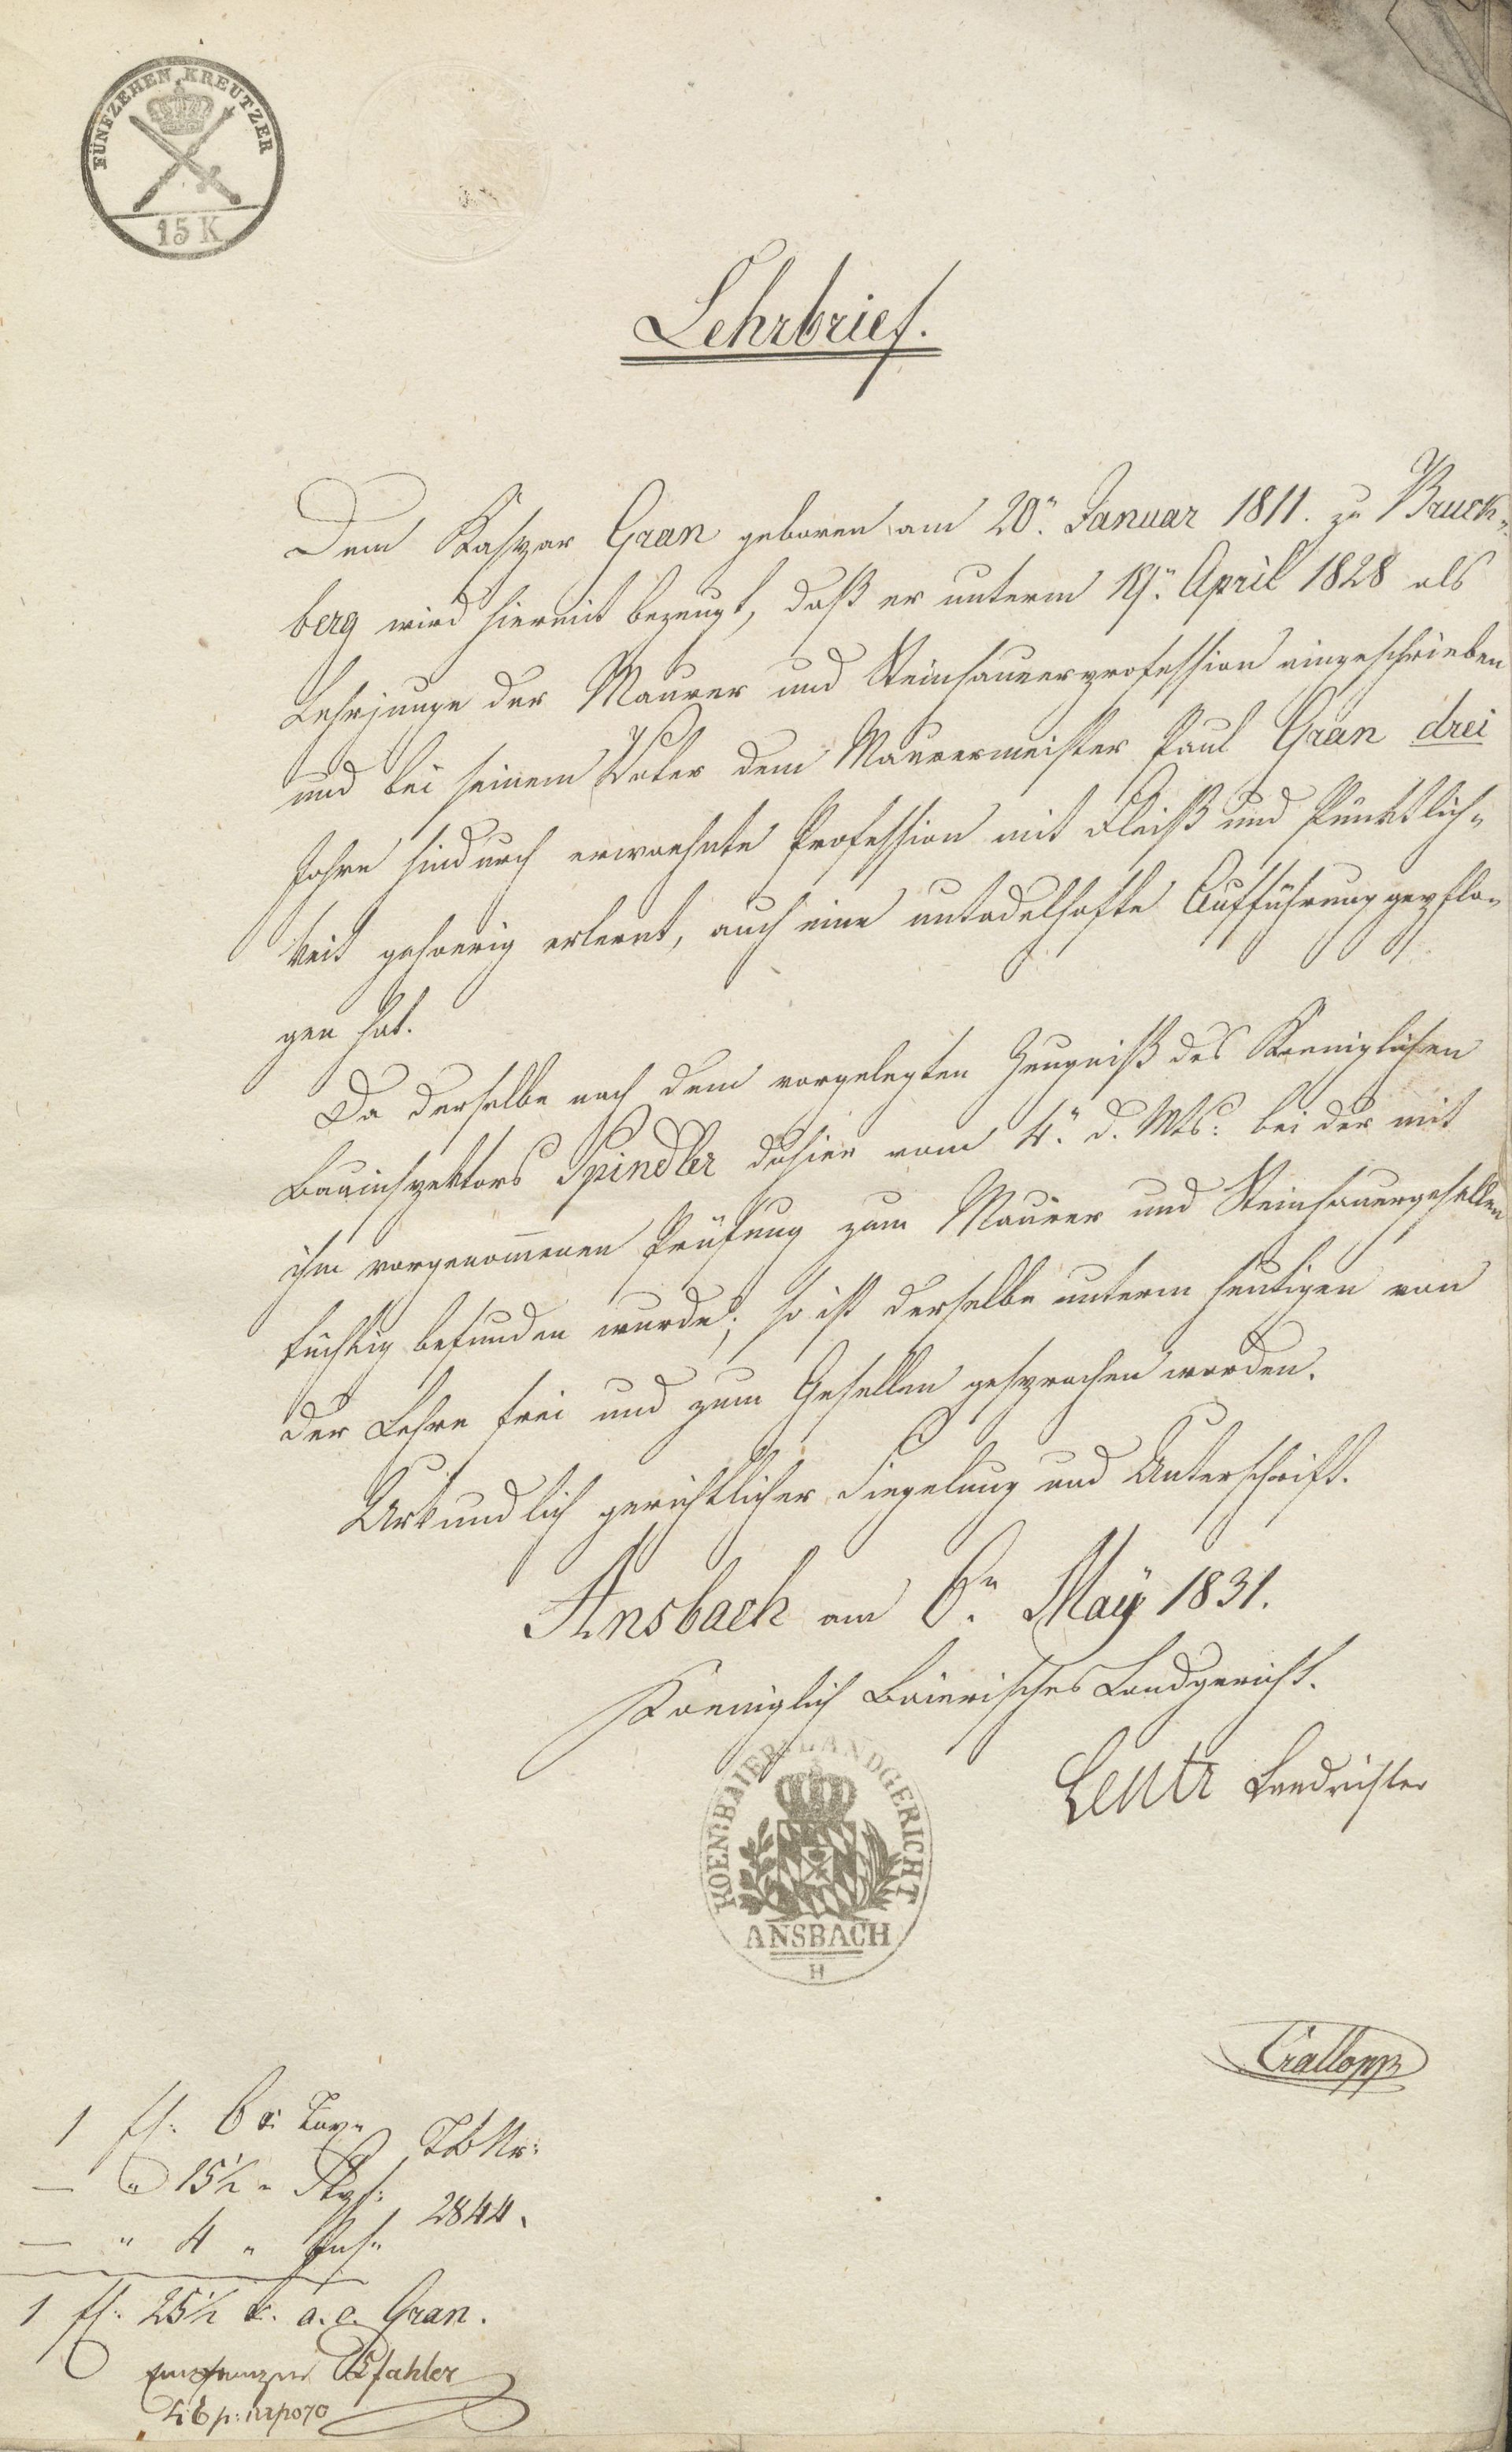 FÜNFZEHEN KREUTZER
15 K
Lehrbrief.
Dem Kaspar Gran geboren am 20.n Januar 1811. zu Bruck-
berg wird hiermit bezeugt, daß er unterm April 1828 als
Lehrjunge der Maurer und Steinhauerprofession eingeschrieben
und bei seinem Vater dem Maurermeister Paul Gran drei
Jahre hindurch erwaehnte Profession mit Fleiß und Pünktlich-
keit gehoerig erlernt, auch eine untadelhafte Aufführung gepflo-
gen hat.
Da derselbe nach dem vorgelegten Zeugniß des Koeniglichen
Bauinspektors Spindler dahier vom 4.n d. Mts: bei der mit
ihm vorgenom̅enen Prüfung zum Maurer und Steinhauergesellen
tüchtig befunden wurde; so ist derselbe unterm heutigen von
der Lehre frei und zum Gesellen gesprochen worden.
Urkundlich gerichtlicher Siegelung und Unterschrift.
Ansbach am 6.n Maÿ 1831.
Koeniglich Baierisches Landgericht.
KOEN. BAIER. LANDGERICHT
ANSBACH
H
Landrichter
1 fl. 6 x. Tax.
TbNr:
— " 15½ " Stpl:
2844.
— " 4 "
1 fl. 25½ x. a. c. Gran.
Pfahler